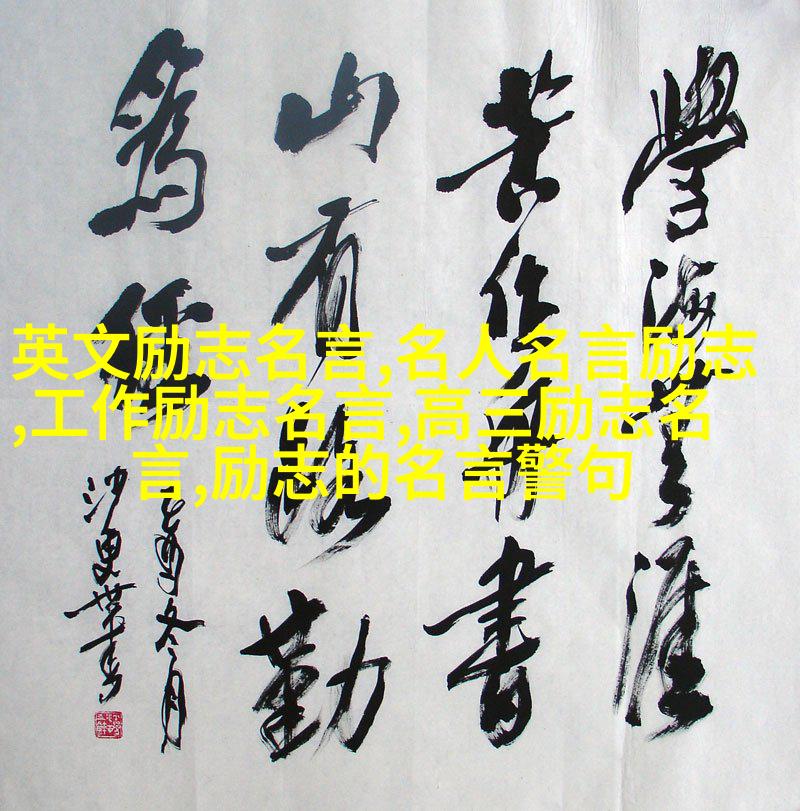 學海無涯
苦作舟書
山有路勤
為徑
冬月
英文励志名言,名人名言励志
,工作励志名言,高三励志名
言,励志的名言警句